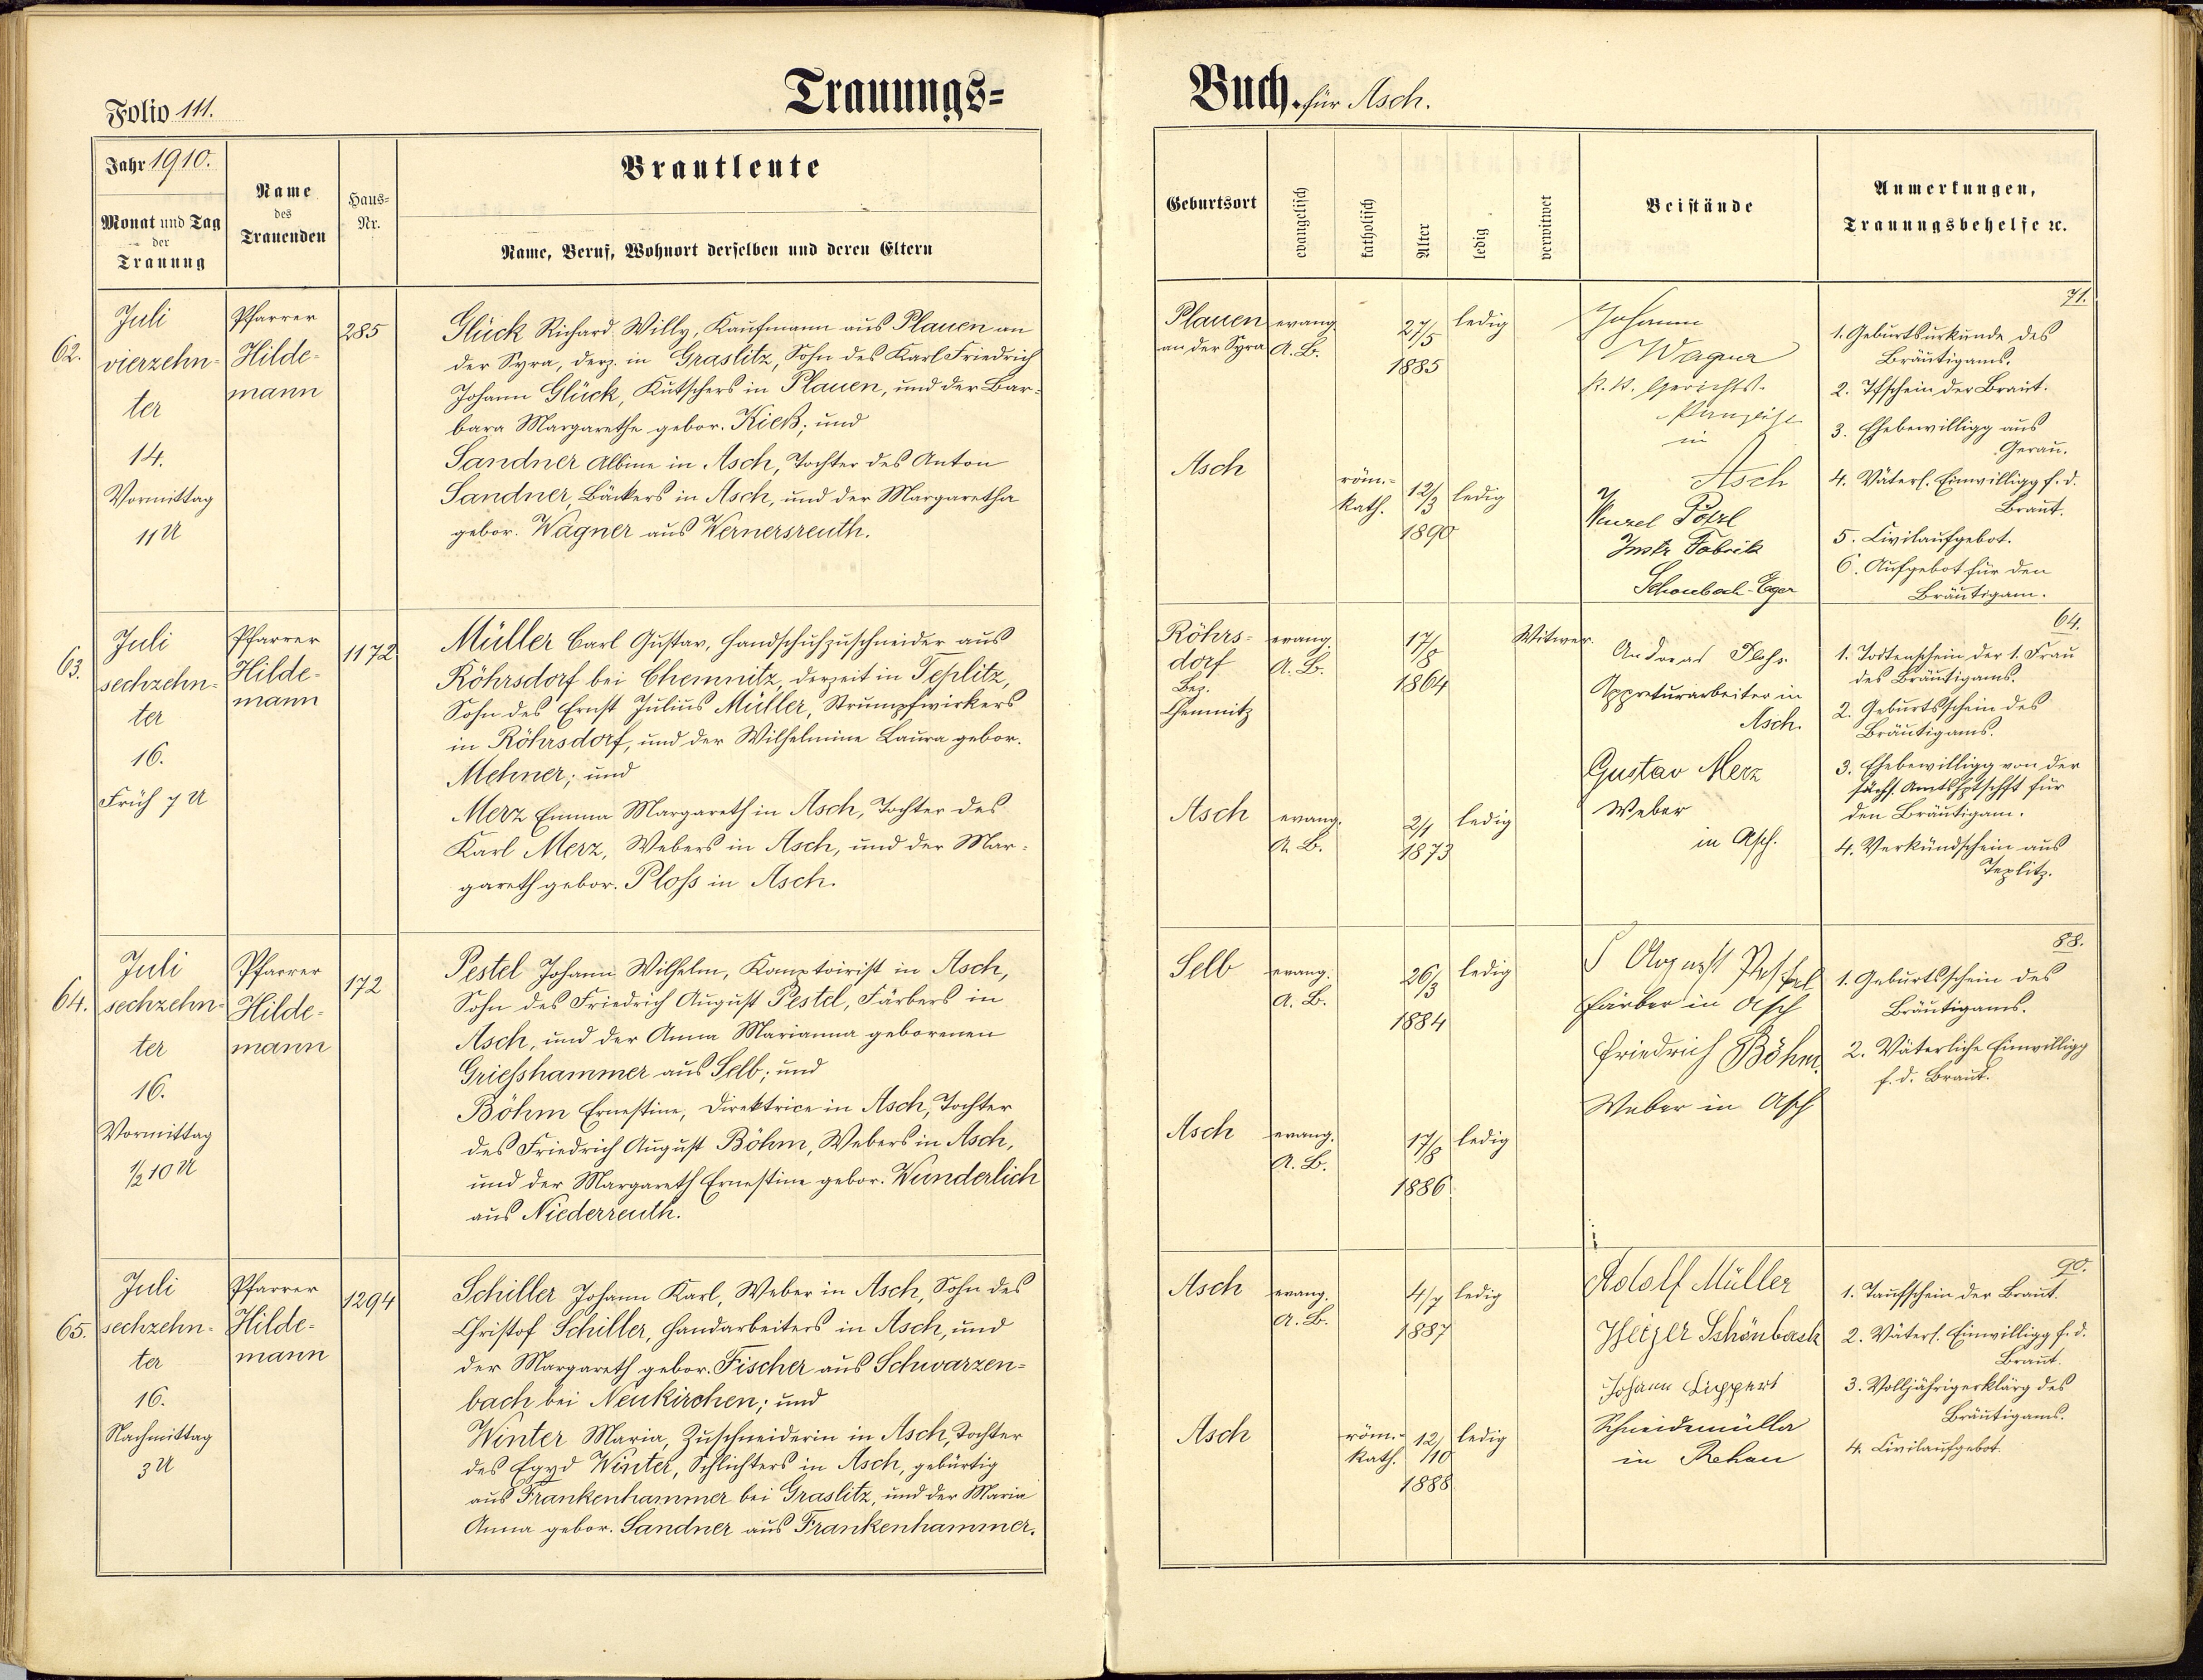 Folio 111.
Trauungs=
Jahr 1910.
Monat und Tag
der
Trauung
Name
des
Trauenden
Haus=
Nr.
Brautleute
Name, Beruf, Wohnort derselben und deren Eltern
62.
Juli
vierzehn-
ter
14.
Vormittag
11 U
Pfarrer
Hilde-
mann
285
Glück Richard Willy, Kaufmann aus Plauen an
der Syra, derz. in Graslitz, Sohn des Karl Friedrich
Johann Glück, Kutschers in Plauen, und der Bar-
bara Margarethe gebor. Kieß; und
Sandner Albine in Asch, Tochter des Anton
Sandner, Bäckers in Asch, und der Margaretha
gebor. Wagner aus Wernersreuth.
63.
Juli
sechzehn-
ter
16.
Früh 7 U
Pfarrer
Hilde-
mann
1172
Müller Carl Gustav, Handschuhzuschneider aus
Röhrsdorf bei Chemnitz, derzeit in Teplitz,
Sohn des Ernst Julius Müller, Strumpfwirkers
in Röhrsdorf, und der Wilhelmine Laura gebor.
Mehner; und
Merz Emma Margareth in Asch, Tochter des
Karl Merz, Webers in Asch, und der Mar-
gareth gebor. Ploß in Asch.
64.
Juli
sechzehn-
ter
16.
Vormittag
1/2 10 U
Pfarrer
Hilde-
mann
172
Pestel Johann Wilhelm, Komptoirist in Asch,
Sohn des Friedrich August Pestel, Färbers in
Asch, und der Anna Marianna geborenen
Grießhammer aus Selb; und
Böhm Ernestine, Direktrice in Asch, Tochter
des Friedrich August Böhm, Webers in Asch,
und der Margareth Ernestine gebor. Wunderlich
aus Niederreuth.
65.
Juli
sechzehn-
ter
16.
Nachmittag
3 U
Pfarrer
Hilde-
mann
1294
Schiller Johann Karl, Weber in Asch, Sohn des
Christof Schiller, Handarbeiters in Asch, und
der Margareth gebor. Fischer aus Schwarzen-
bach bei Neukirchen; und
Winter Maria, Zuschneiderin in Asch, Tochter
des Egyd Winter, Schlichters in Asch, gebürtig
aus Frankenhammer bei Graslitz, und der Maria
Anna gebor. Sandner aus Frankenhammer.
Buch. für Asch.
Geburtsort
evangelisch
katholisch
Alter
ledig
verwitwet
Beistände
Anmerkungen,
Trauungsbehelfe ꝛc.
Plauen
an der Syra
evang.
A. B.
27/5
1885
ledig
Asch
röm.-
kath.
12/3
1890
ledig
Johann
Wagner
k. k. Gerichts-
in
Asch
Wenzel Pötzl
Instr Fabrik
Schönbach-Eger
71.
1. Geburtsurkunde des
Bräutigams.
2. Tfschein der Braut.
3. Ehebewilligg aus
Gerau.
4. Väterl. Einwilligg f. d.
Braut.
5. Civilaufgebot.
6. Aufgebot für den
Bräutigam.
Röhrs-
dorf
Bez.
Chemnitz
evang.
A. B.
17/8
1864
Witwer.
Asch
evang.
A. B.
2/1
1873
ledig
Andreas Ploß
Appreturarbeiter in
Asch.
Gustav Merz
Weber
in Asch.
64.
1. Todtenschein der 1. Frau
des Bräutigams.
2. Geburtsschein des
Bräutigams.
3. Ehebewilligg von der
sächs. Amtshptschft für
den Bräutigam.
4. Verkündschein aus
Teplitz.
Selb
evang.
A. B.
26/3
1884
ledig
Asch
evang.
A. B.
17/8
1886
ledig
August Pestel
Färber in Asch
Friedrich Böhm.
Weber in Asch
88.
1. Geburtsschein des
Bräutigams.
2. Väterliche Einwilligg
f. d. Braut.
Asch
evang.
A. B.
4/7
1887
ledig
Asch
röm.-
kath.
12/10
1888
ledig
Adolf Müller
Heizer Schönbach
Johann Lippert
Schneidemüller
in Rehau
90.
1. Taufschein der Braut.
2. Väterl. Einwilligg f. d.
Braut.
3. Volljährigerklärg des
Bräutigams.
4. Civilaufgebot.